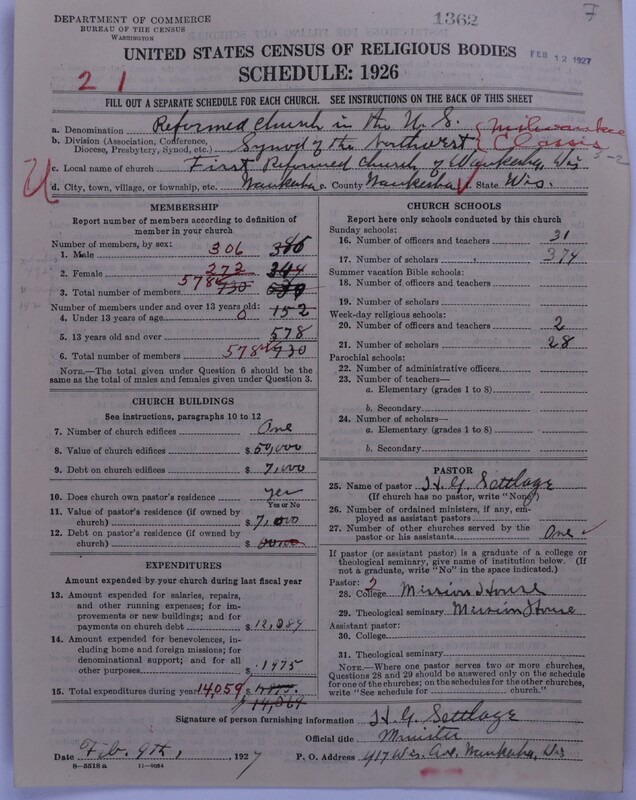 DEPARTMENT OF COMMERCE
BUREAU OF THE CENSUS
WASHINGTON
1362
7
UNITED STATES CENSUS OF RELIGIOUS BODIES
FEB 12 1927
SCHEDULE: 1926
2 1
FILL OUT A SEPARATE SCHEDULE FOR EACH CHURCH. SEE INSTRUCTIONS ON THE BACK OF THIS SHEET
a. Denomination Reformed Church in the U. S.
b. Division (Association, Conference, Diocese, Presbytery, Synod, etc.) Synod of the Northwest { Milwaukee Classis
c. Local name of church First Reformed Church of Waukesha, Wis
3-2
d. City, town, village, or township, etc. Waukesha e. County Waukesha f. State Wis.
MEMBERSHIP
Report number of members according to definition of
member in your church
Number of members, by sex:
1. Male 306 386
2. Female 272 344
3. Total number of members 578 730
Number of members under and over 13 years old:
4. Under 13 years of age 0 152
5. 13 years old and over 578
6. Total number of members 578 730
NOTE.—The total given under Question 6 should be
the same as the total of males and females given under Question 3.
CHURCH BUILDINGS
See instructions, paragraphs 10 to 12
7. Number of church edifices One
8. Value of church edifices $ 50,000
9. Debt on church edifices $ 7,000
10. Does church own pastor's residence yes
Yes or No
11. Value of pastor's residence (if owned by
church) $ 7,000
12. Debt on pastor's residence (if owned by
church) $
EXPENDITURES
Amount expended by your church during last fiscal year
13. Amount expended for salaries, repairs,
and other running expenses; for im-
provements or new buildings; and for
payments on church debt $ 12,084
14. Amount expended for benevolences, in-
cluding home and foreign missions; for
denominational support; and for all
other purposes $ 1975
15. Total expenditures during year 14,059 $
CHURCH SCHOOLS
Report here only schools conducted by this church
Sunday schools:
16. Number of officers and teachers 31
17. Number of scholars 374
Summer vacation Bible schools:
18. Number of officers and teachers
19. Number of scholars
Week-day religious schools:
20. Number of officers and teachers 2
21. Number of scholars 28
Parochial schools:
22. Number of administrative officers
23. Number of teachers—
a. Elementary (grades 1 to 8)
b. Secondary
24. Number of scholars—
a. Elementary (grades 1 to 8)
b. Secondary
PASTOR
25. Name of pastor H. G. Settlage
(If church has no pastor, write "None")
26. Number of ordained ministers, if any, em-
ployed as assistant pastors
27. Number of other churches served by the
pastor or his assistants One
If pastor (or assistant pastor) is a graduate of a college or
theological seminary, give name of institution below. (If
not a graduate, write "No" in the space indicated.)
Pastor: 2
28. College Mission House
29. Theological seminary Mission House
Assistant pastor:
30. College
31. Theological seminary
NOTE.—Where one pastor serves two or more churches,
Questions 28 and 29 should be answered only on the schedule
for one of the churches; on the schedules for the other churches,
write "See schedule for church."
Signature of person furnishing information H. G. Settlage
Official title Minister
Date Feb. 9th, 1927 P. O. Address 417 Wis. Ave. Waukesha, Wis
8—5518 a 11—9084